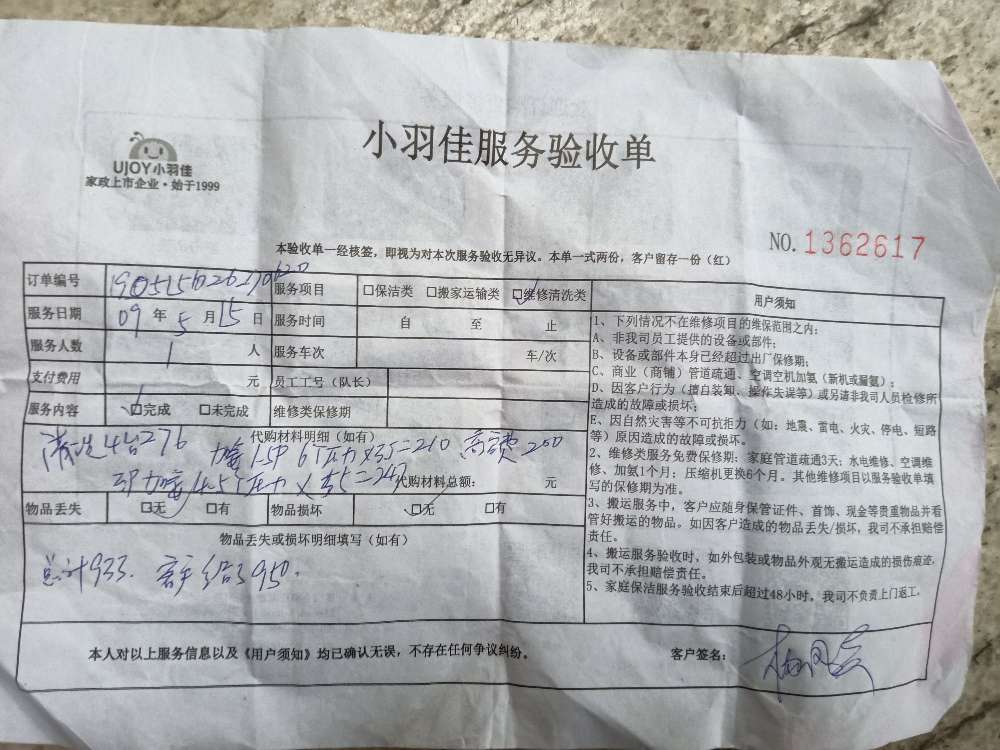 小羽佳服务验收单
UJOY小羽佳
家政上市企业·始于1999
NO. 1362617
本验收单一经核签，即视为对本次服务验收无异议。本单一式两份，客户留存一份（红）
订单编号
服务项目 □保洁类 □搬家运输类 □维修清洗类
服务日期 09 年 5 月 15 日 服务时间 自 至 止
服务人数 1 人 服务车次 车/次
支付费用 元 员工工号（队长）
服务内容 □完成 □未完成 维修类保修期
代购材料明细（如有）
清洗4台276 加 1.5P 6个压力X35=210 高空费200
4.5个压力X 代购材料总额： 元
物品丢失 □无 □有 物品损坏 □无 □有
物品丢失或损坏明细填写（如有）
总计933. 给了950.
用户须知
1、下列情况不在维修项目的维保范围之内：
A、非我司员工提供的设备或部件；
B、设备或部件本身已经超过出厂保修期；
C、商业（商铺）管道疏通、空调空机加氨（新机或漏氨）；
D、因客户行为（擅自装卸、操作失误等）或另请非我司人员检修所
造成的故障或损坏；
E、因自然灾害等不可抗拒力（如：地震、雷电、火灾、停电、短路
等）原因造成的故障或损坏。
2、维修类服务免费保修期：家庭管道疏通3天；水电维修、空调维
修、加氨1个月；压缩机更换6个月。其他维修项目以服务验收单填
写的保修期为准。
3、搬运服务中，客户应随身保管证件、首饰、现金等贵重物品并看
管好搬运的物品。如因客户造成的物品丢失/损坏，我司不承担赔偿
责任。
4、搬运服务验收时，如外包装或物品外观无搬运造成的损伤痕迹，
我司不承担赔偿责任。
5、家庭保洁服务验收结束后超过48小时，我司不负责上门返工。
本人对以上服务信息以及《用户须知》均已确认无误，不存在任何争议纠纷。
客户签名：